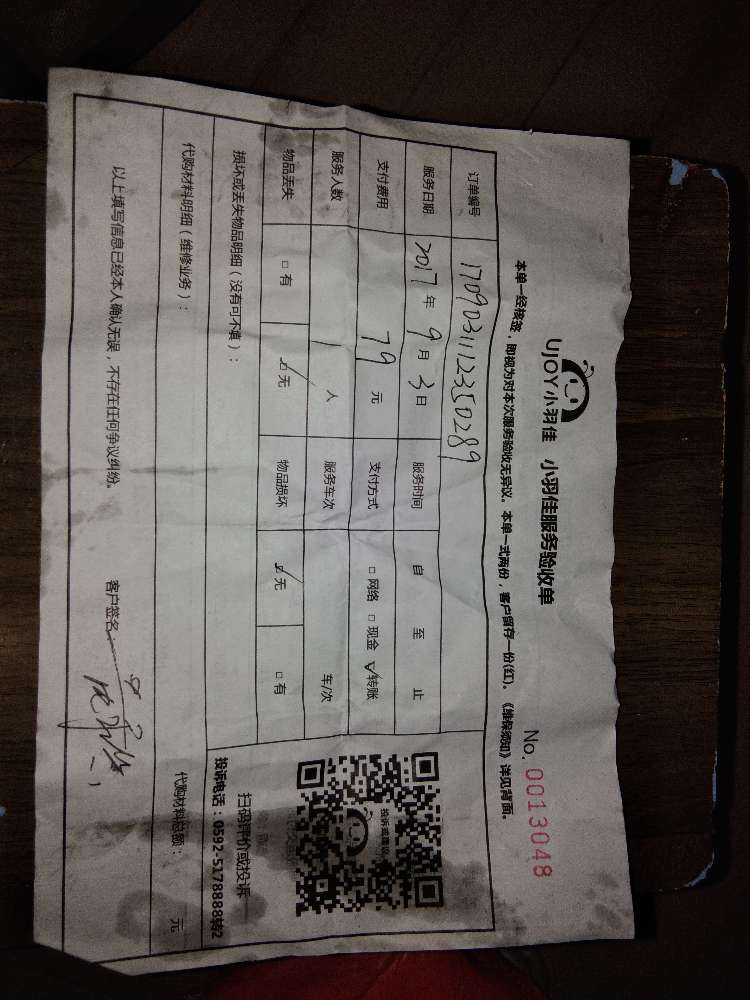 UJOY小羽佳 小羽佳服务验收单
No. 0013048
本单一经核签，即视为对本次服务验收无异议。本单一式两份，客户留存一份(红)。《维保须知》详见背面。
订单编号 170903112350289
服务日期 2017年9月3日 服务时间 自 至 止
支付费用 79 元 支付方式 □网络 □现金 ☑转账
服务人数 1 人 服务车次 车/次
物品丢失 □有 ☑无 物品损坏 ☑无 □有
损坏或丢失物品明细（没有可不填）：
投诉或建议
扫码评价或投诉
投诉电话：0592-5178888转2
代购材料明细（维修业务）： 代购材料总额： 元
以上填写信息已经本人确认无误，不存在任何争议纠纷。
客户签名：